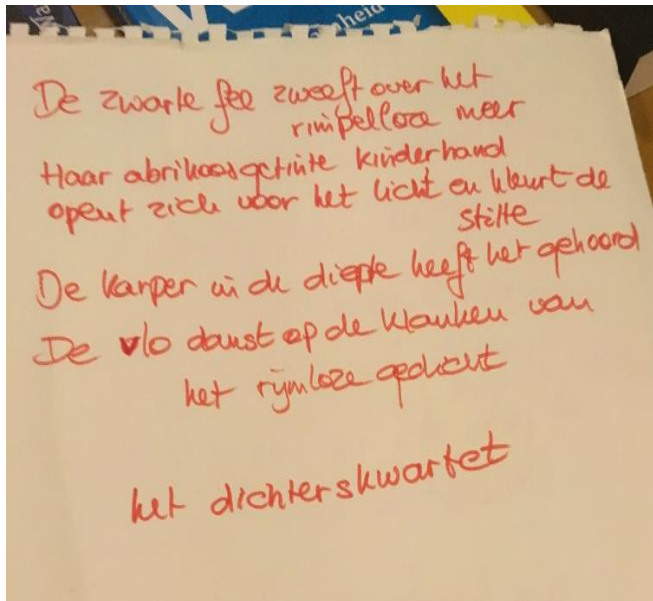 heid
De zwarte fee zweeft over het
rimpelloze meer
Haar abrikoosgetinte kinderhand
opent zich voor het licht en kleurt de
stilte
De karper in de diepte heeft het gehoord
De vlo danst op de klanken van
het rijmloze gedicht
het dichterskwartet